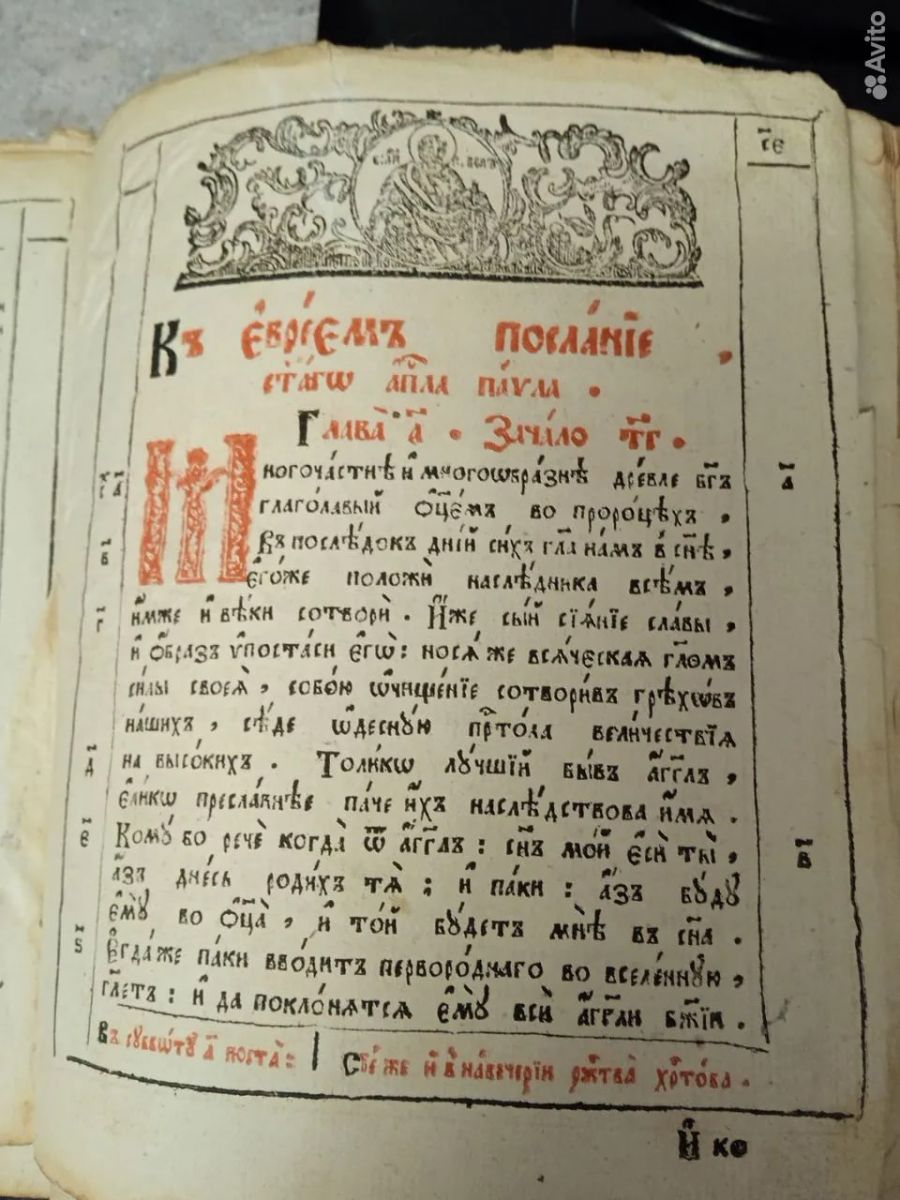 Avito
Къ є҆вре́ємъ посла́нїе ,
ст҃а́гѡ а҆пⷭ҇ла па́ѵла .
Глава̀ а҃ . Зача́ло т҃г .
Многоча́стнѣ и҆ многоѡбра́знѣ дре́вле бг҃ъ
глаго́лавый ѻ҆ц҃є́мъ во проро́цѣхъ ,
а҃
въ послѣ́докъ дні́й си́хъ гл҃а на́мъ в̾ сн҃ѣ ,
в҃
є҆го́же положѝ наслѣ́дника всѣ́мъ ,
и҆́мже и҆ вѣ́ки сотворѝ . И҆́же сы́й сїѧ́нїе сла́вы ,
г҃
и҆ ѻ҆́бразъ ѵ҆поста́си є҆гѡ̀ : носѧ́ же всѧ́ческаѧ гл҃омъ
си́лы своеѧ̀ , собо́ю ѡ҆чище́нїе сотвори́въ грѣхѡ́въ
на́шихъ , сѣ́де ѡ҆десну́ю прⷭ҇то́ла вели́чествїѧ
на высо́кихъ . Толи́кѡ лу́чшїй бы́въ а҆́гг҃лъ ,
д҃
є҆ли́кѡ пресла́внѣе па́че и҆́хъ наслѣ́дствова и҆́мѧ .
Кому́ бо речѐ когда̀ ѿ а҆́гг҃лъ : сн҃ъ мо́й є҆сѝ ты̀ ,
є҃
в҃
а҆́зъ дне́сь роди́хъ тѧ̀ ; и҆ па́ки : а҆́зъ бу́ду
є҆му̀ во ѻ҆ц҃а̀ , и҆ то́й бу́детъ мнѣ̀ въ сн҃а .
Є҆гда́ же па́ки вво́дитъ перворо́днаго во вселе́нную ,
ѕ҃
гл҃етъ : и҆ да покло́нѧтсѧ є҆му̀ всѝ а҆́гг҃ли бж҃їи .
Въ суббѡ́ту а҃ поста̀ :
Сїе́ же и҆ в̾ навече́рїи ржⷭ҇тва̀ хрⷭ҇то́ва .
И҆ ко